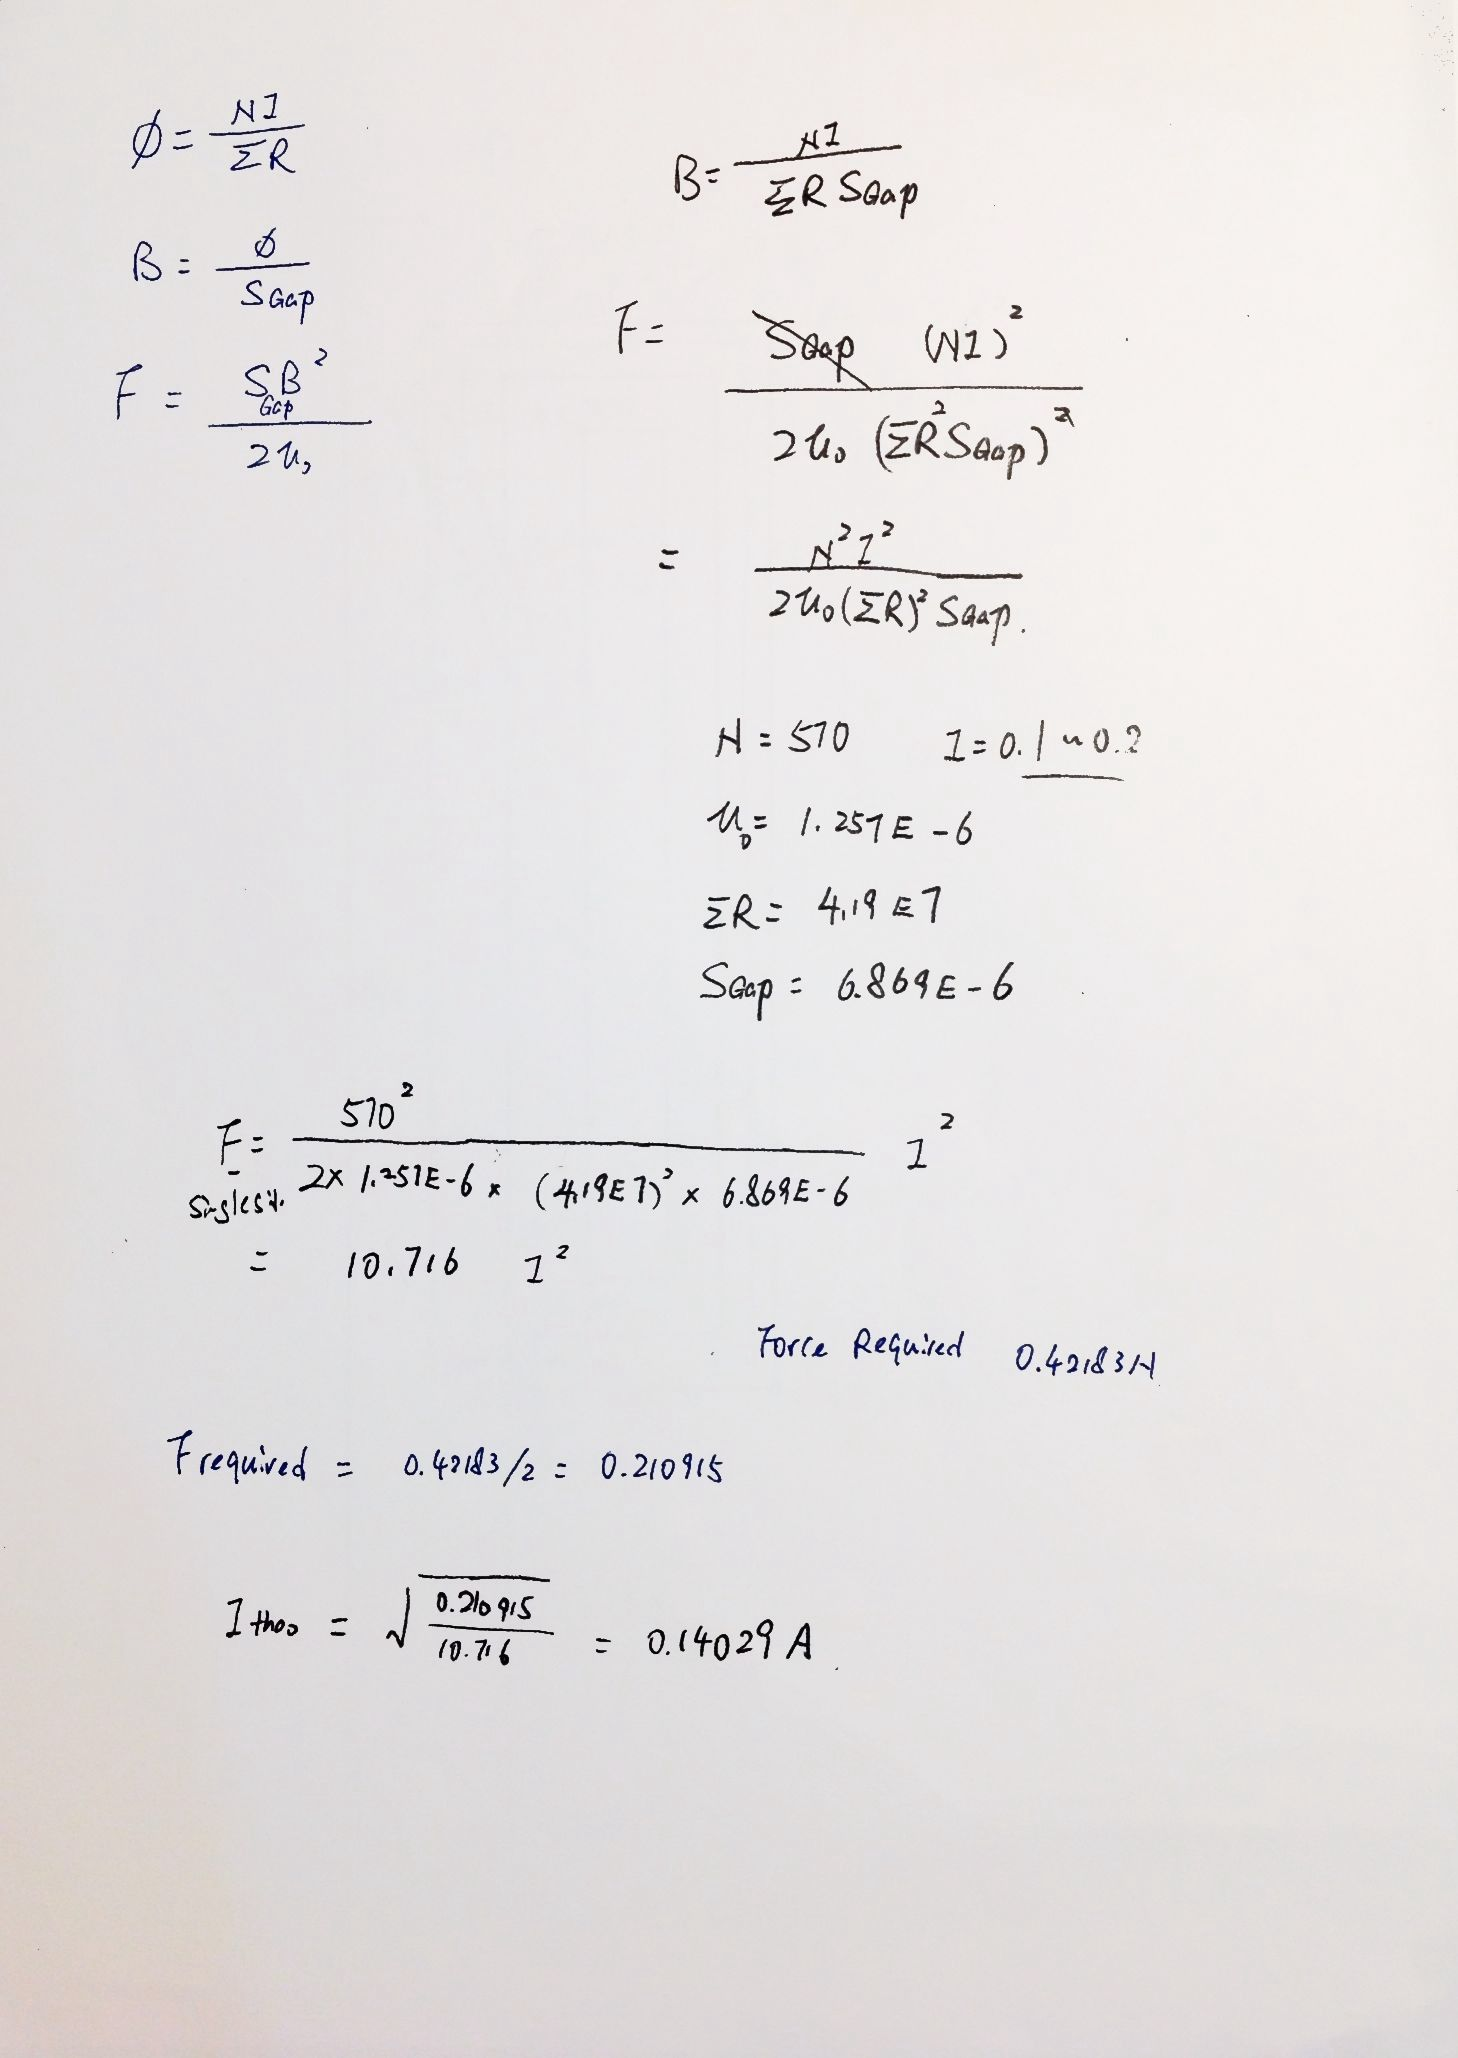 Ø = NI / ΣR
B = Ø / SGap
F = SGap B² / 2u₀
B = NI / ΣR SGap
F = SGap (NI)² / 2u₀ (ΣR²SGap)²
= N²I² / 2u₀(ΣR)² SGap.
N = 570 I = 0.1 ~ 0.2
u₀ = 1.257E-6
ΣR = 4.19E7
SGap = 6.869E-6
F = 570² / 2× 1.257E-6 × (4.19E7)² × 6.869E-6 I²
= 10.716 I²
Force Required 0.42183N
Frequired = 0.42183/2 = 0.210915
I theo = √ 0.210915 / 10.716 = 0.14029 A